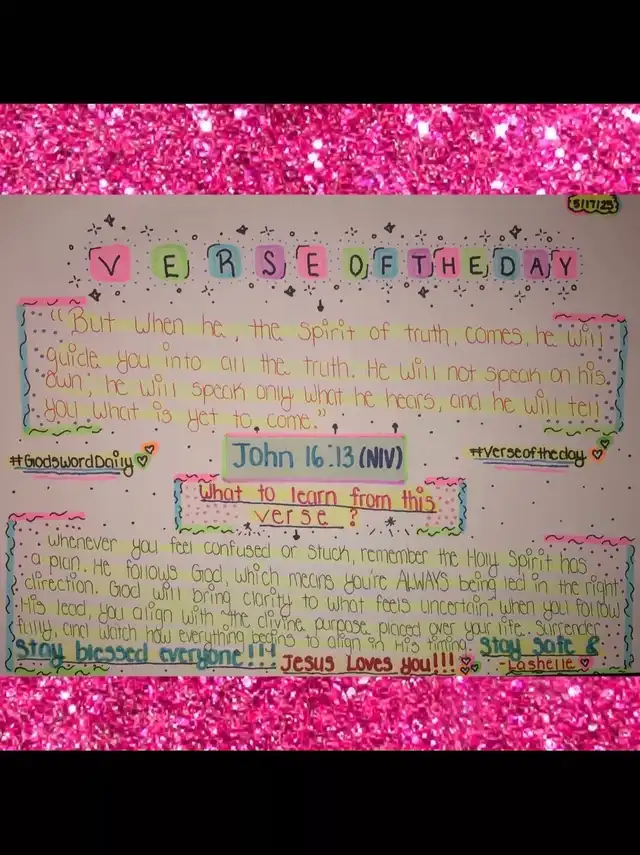 5/17/25
VERSE OF THE DAY
"But when he, the spirit of truth, comes, he will
guide you into all the truth. He will not speak on his
own; he will speak only what he hears, and he will tell
you what is yet to come."
John 16:13 (NIV)
#GodsWordDaily
#Verseoftheday
What to learn from this
verse?
Whenever you feel confused or stuck, remember the Holy Spirit has
a plan. He follows God, which means you're ALWAYS being led in the right
direction. God will bring clarity to what feels uncertain. When you follow
His lead, you align with the divine purpose placed over your life. Surrender
fully, and watch how everything begins to align in His timing.
Stay blessed everyone!!! Jesus Loves you!!! Stay safe &
-Lashelle